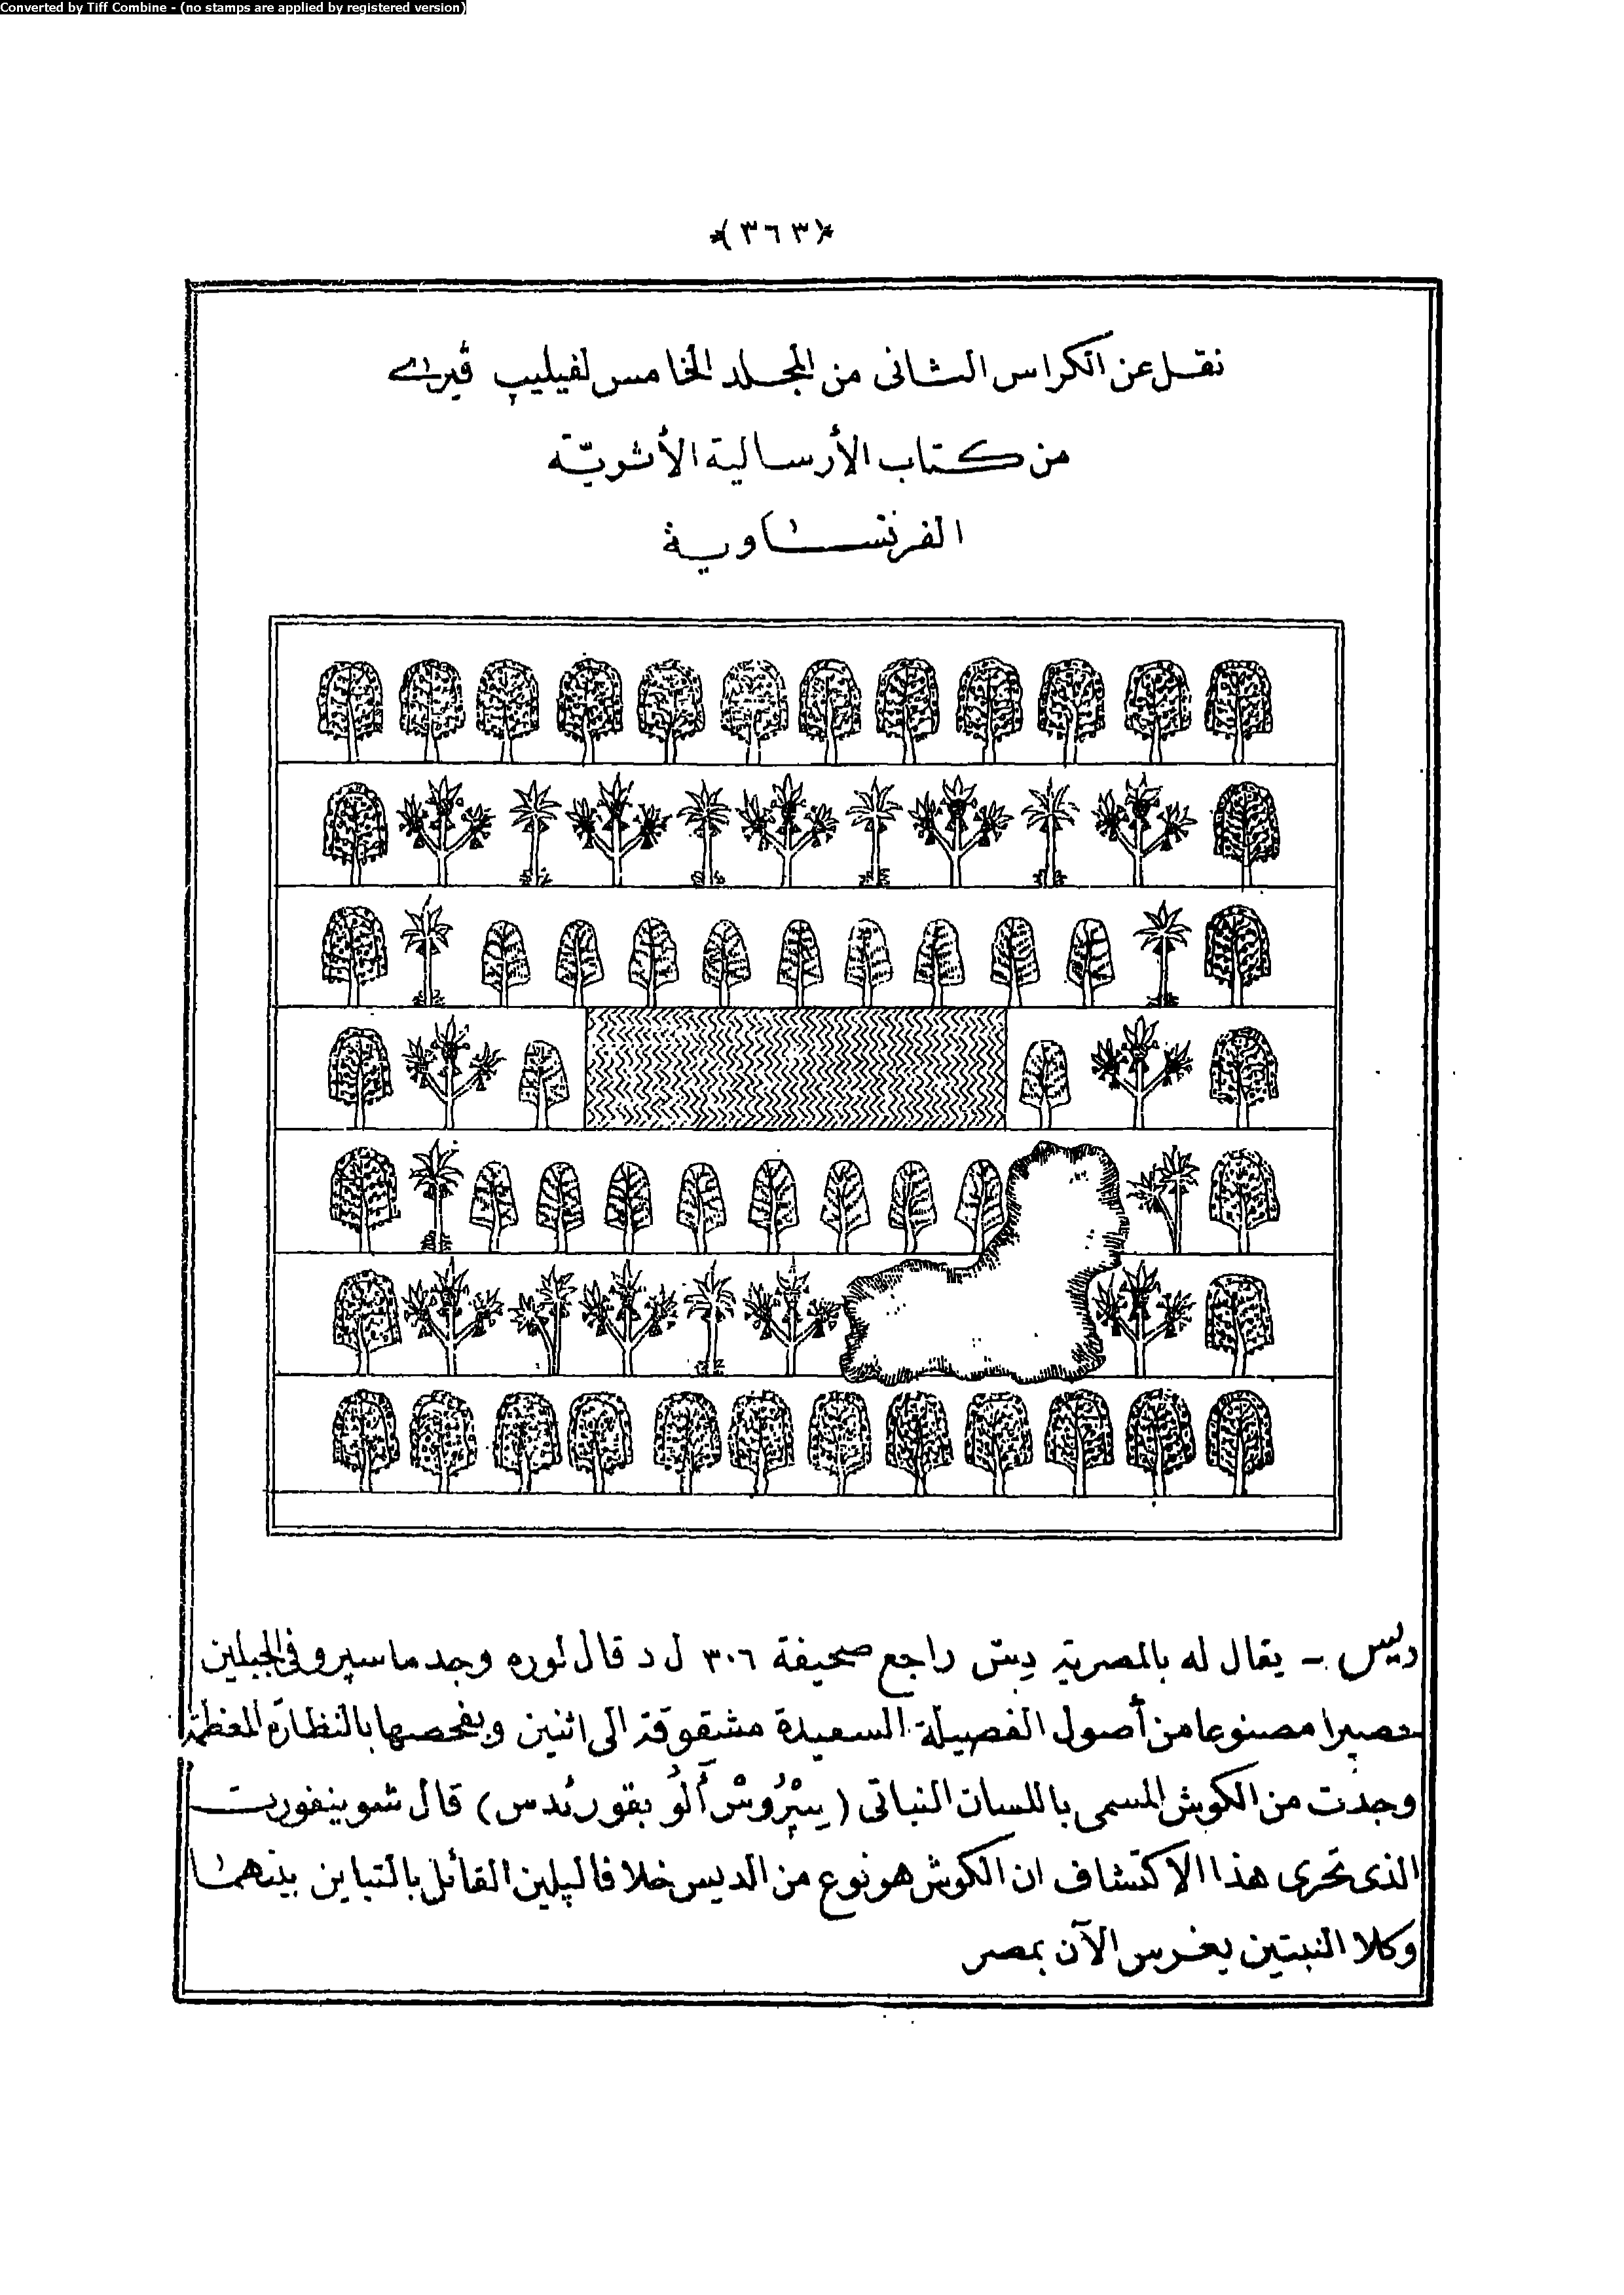 Converted by Tiff Combine - (no stamps are applied by registered version)
﴿٣٦٣﴾
نقل عن الكراس الثانى من المجلد الخامس لفيليب ڤيراى
من كتاب الأرسالية الأثريّة
الفرنساوية
ديس - يقال له بالمصرية دِيسْ راجع صحيفة ٣٠٦ ل د قال لوره وجد ماسپرو فى الجبلين
حصيرا مصنوعا من أصول الفصيلة السعيدة مشقوقة الى اثنين وبفحصها بالنظارة المعظمة
وجدت من الكوش المسمى باللسان النباتى (سِپْرُوسْ أَلُو بقورئدس) قال شوينفورت
الذى تحرى هذا الاكتشاف ان الكوش هو نوع من الديس خلافا لپلين القائل بالتباين بينهما
وكلا النبتين يغرس الآن بمصر